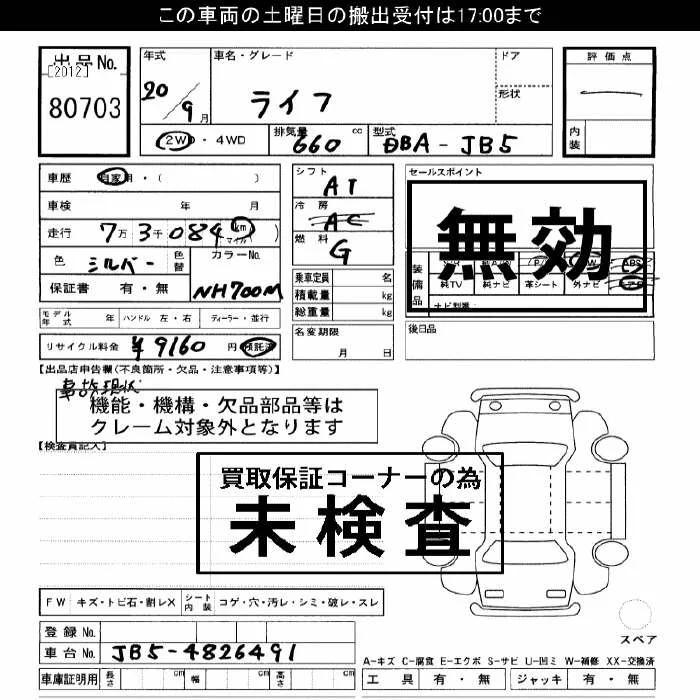 この車両の土曜日の搬出受付は17:00まで
出品No.
[2012]
80703
年式
20/9月
車名・グレード
ライフ
ドア
形状
評価点
内装
2WD・4WD
排気量
660 cc
型式
DBA-JB5
車歴 自家用・( )
車検 年 月
走行 7万3千084 km マイル
色 シルバー 色替
カラーNo.
NH700M
保証書 有・無
シフト
AT
冷房
AC
燃料
G
乗車定員 名
積載量 kg
総重量 kg
セールスポイント
無効
装備品
純TV 純ナビ 革シート 外ナビ
ナビ型番:
モデル年式 年 ハンドル 左・右 ディーラー・並行
名変期限
月 日
後日品
リサイクル料金 ¥9160 円 預託済
【出品店申告欄(不良箇所・欠品・注意事項等)】
事故現状
機能・機構・欠品部品等は
クレーム対象外となります
【検査員記入】
買取保証コーナーの為
未検査
FW キズ・トビ石・割レX シート内装 コゲ・穴・汚レ・シミ・破レ・スレ
登録No.
車台No. JB5-4826491
車庫証明用 長さ cm 幅 cm 高さ cm
スペア
A-キズ C-腐食 E-エクボ S-サビ U-凹ミ W-補修 XX-交換済
工具 有・無 ジャッキ 有・無